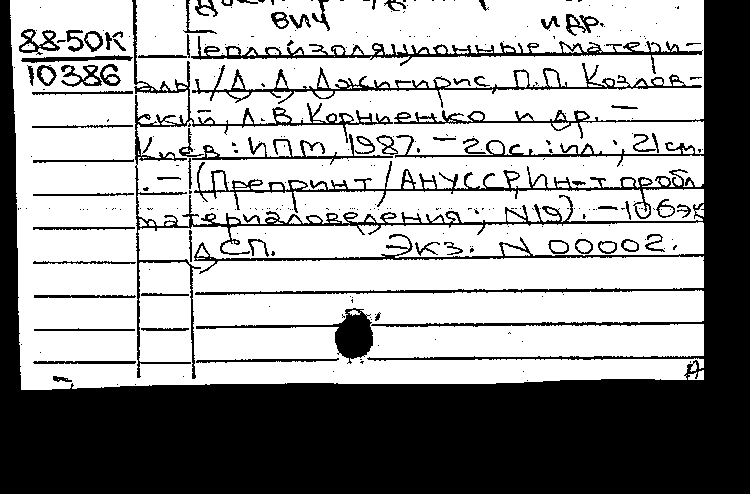 вич и др.
88-50К Теплоизоляционные матери-
10386 алы / Д. Д. Джигирис, П.П. Козлов-
ский, Л.В. Корниенко и др. —
Киев : ИПМ, 1987. — 20 с. : ил. ; 21 см.
. — (Препринт / АН УССР, Ин-т пробл.
материаловедения ; N19). — 106 эк
ДСП. Экз. N 00002.
А